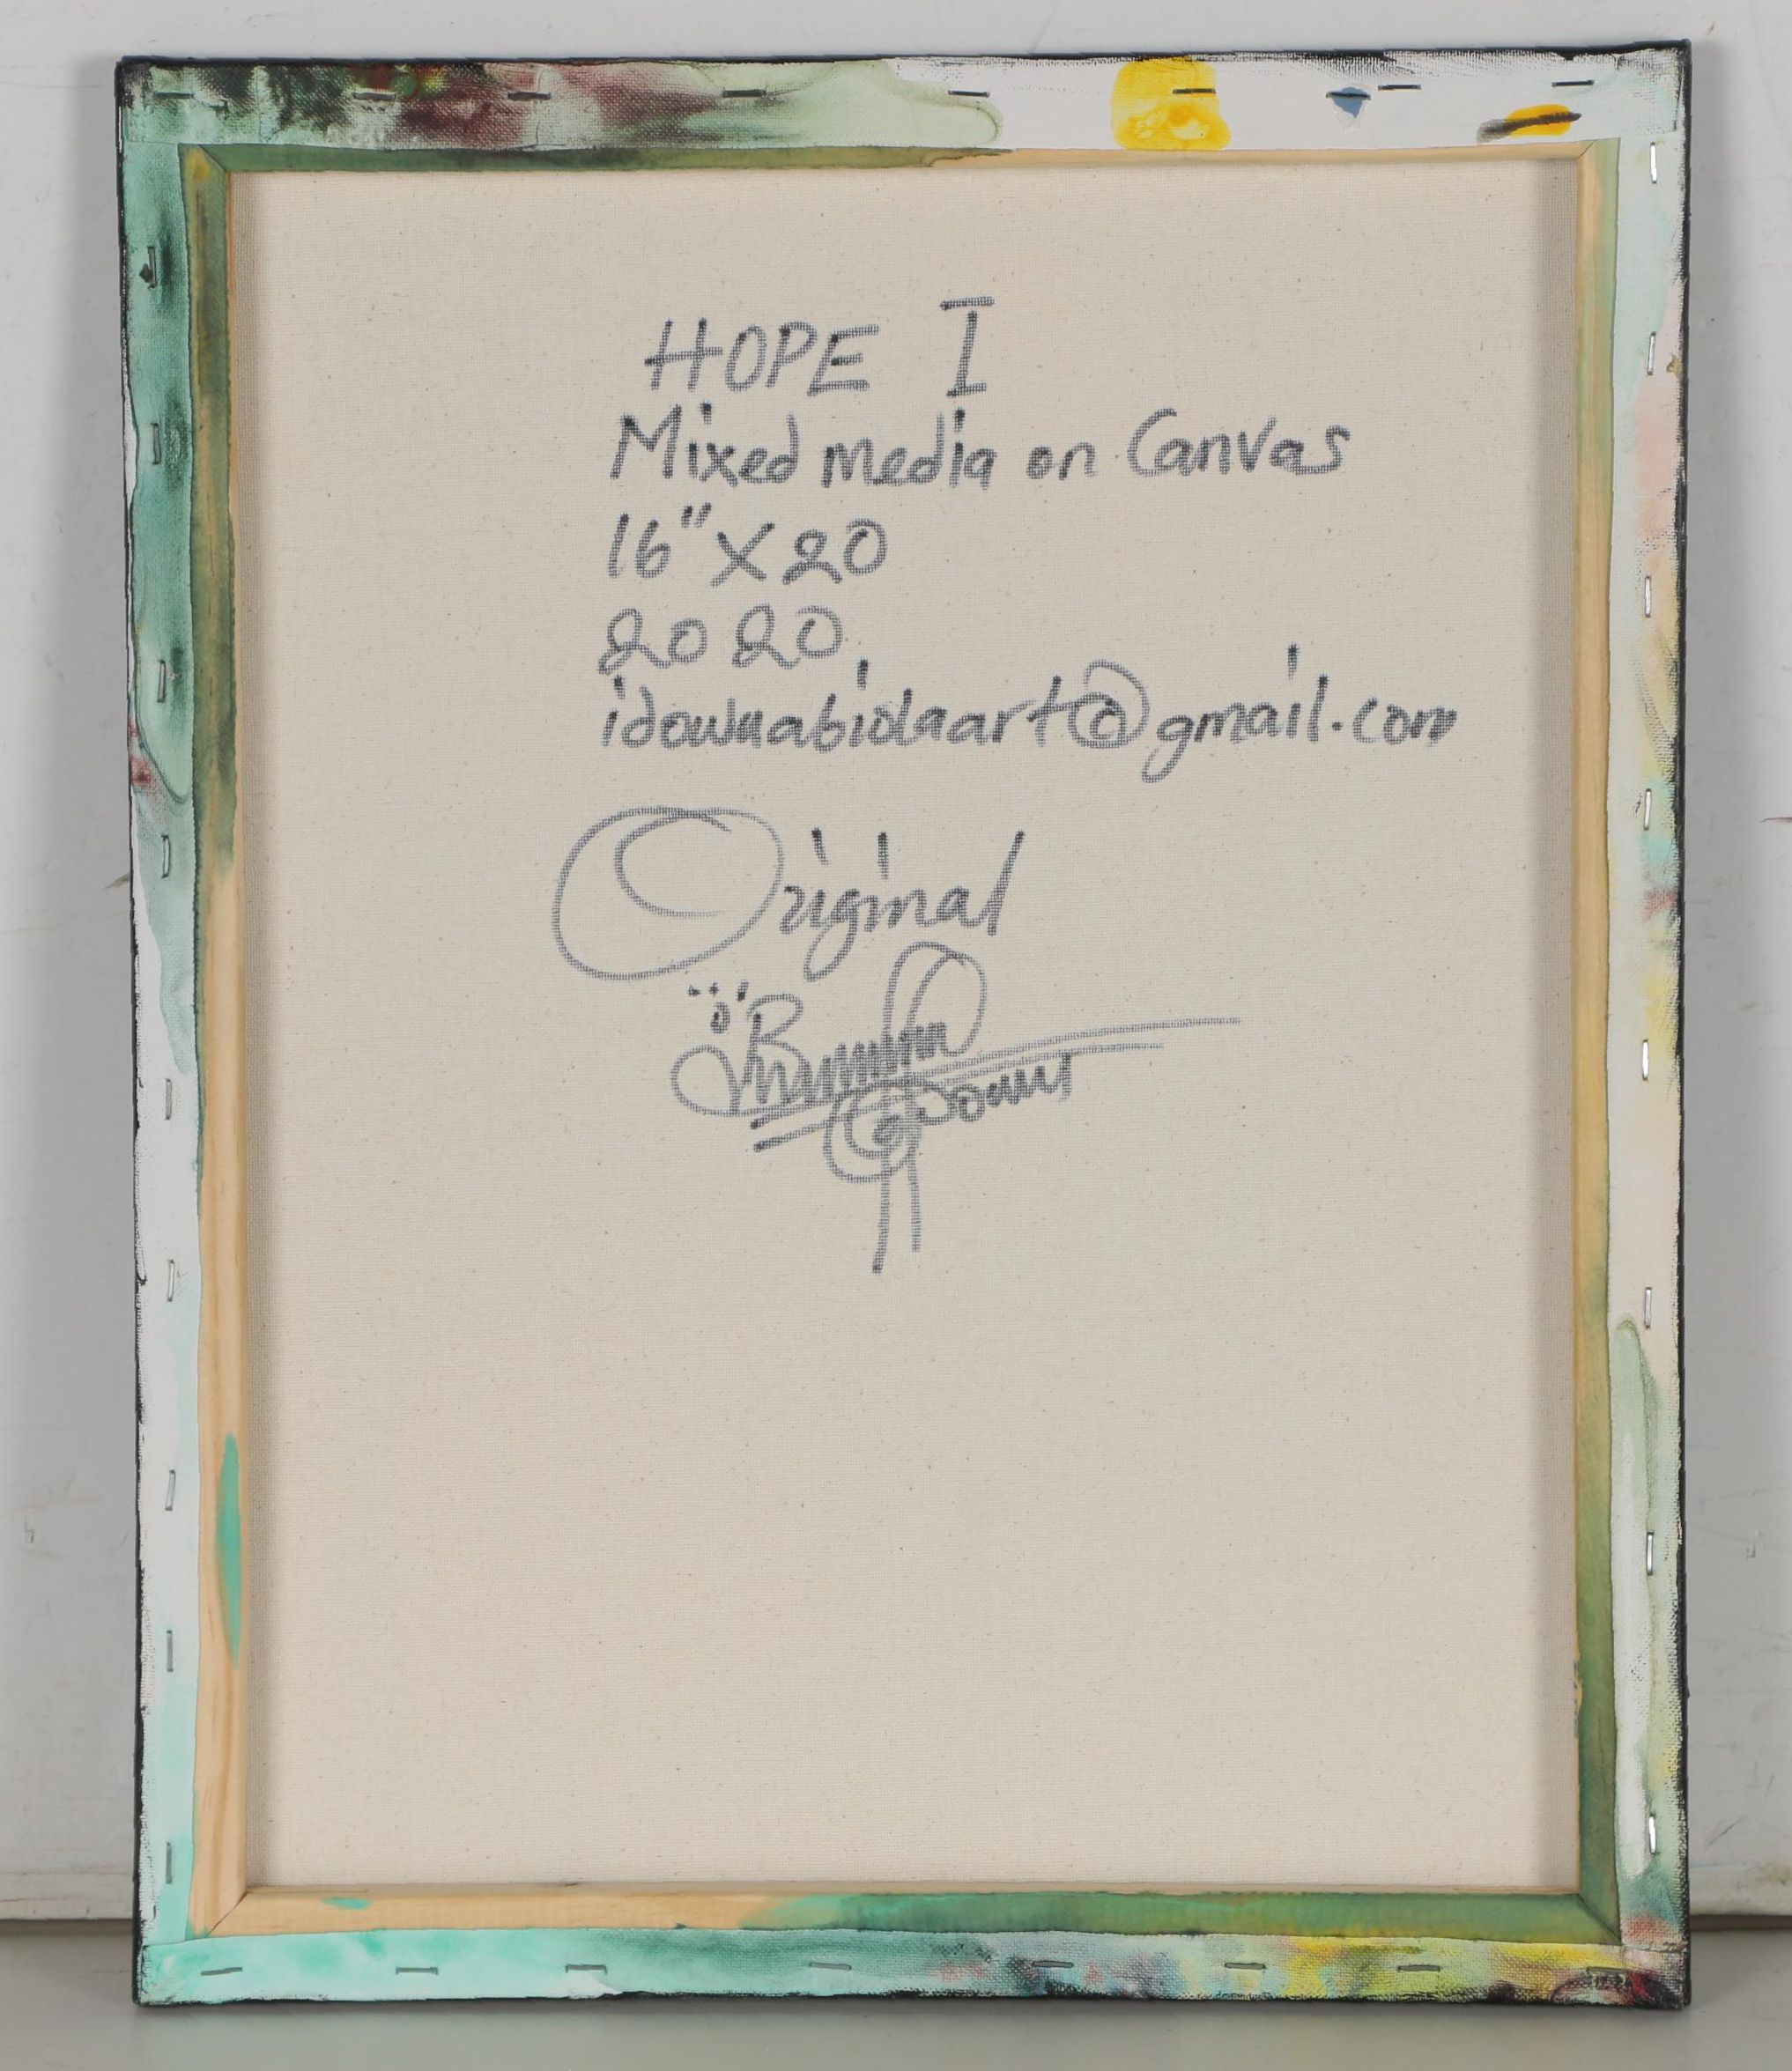 HOPE I
Mixed media on Canvas
16" X 20
2020
idowuabiolaart@gmail.com
Original